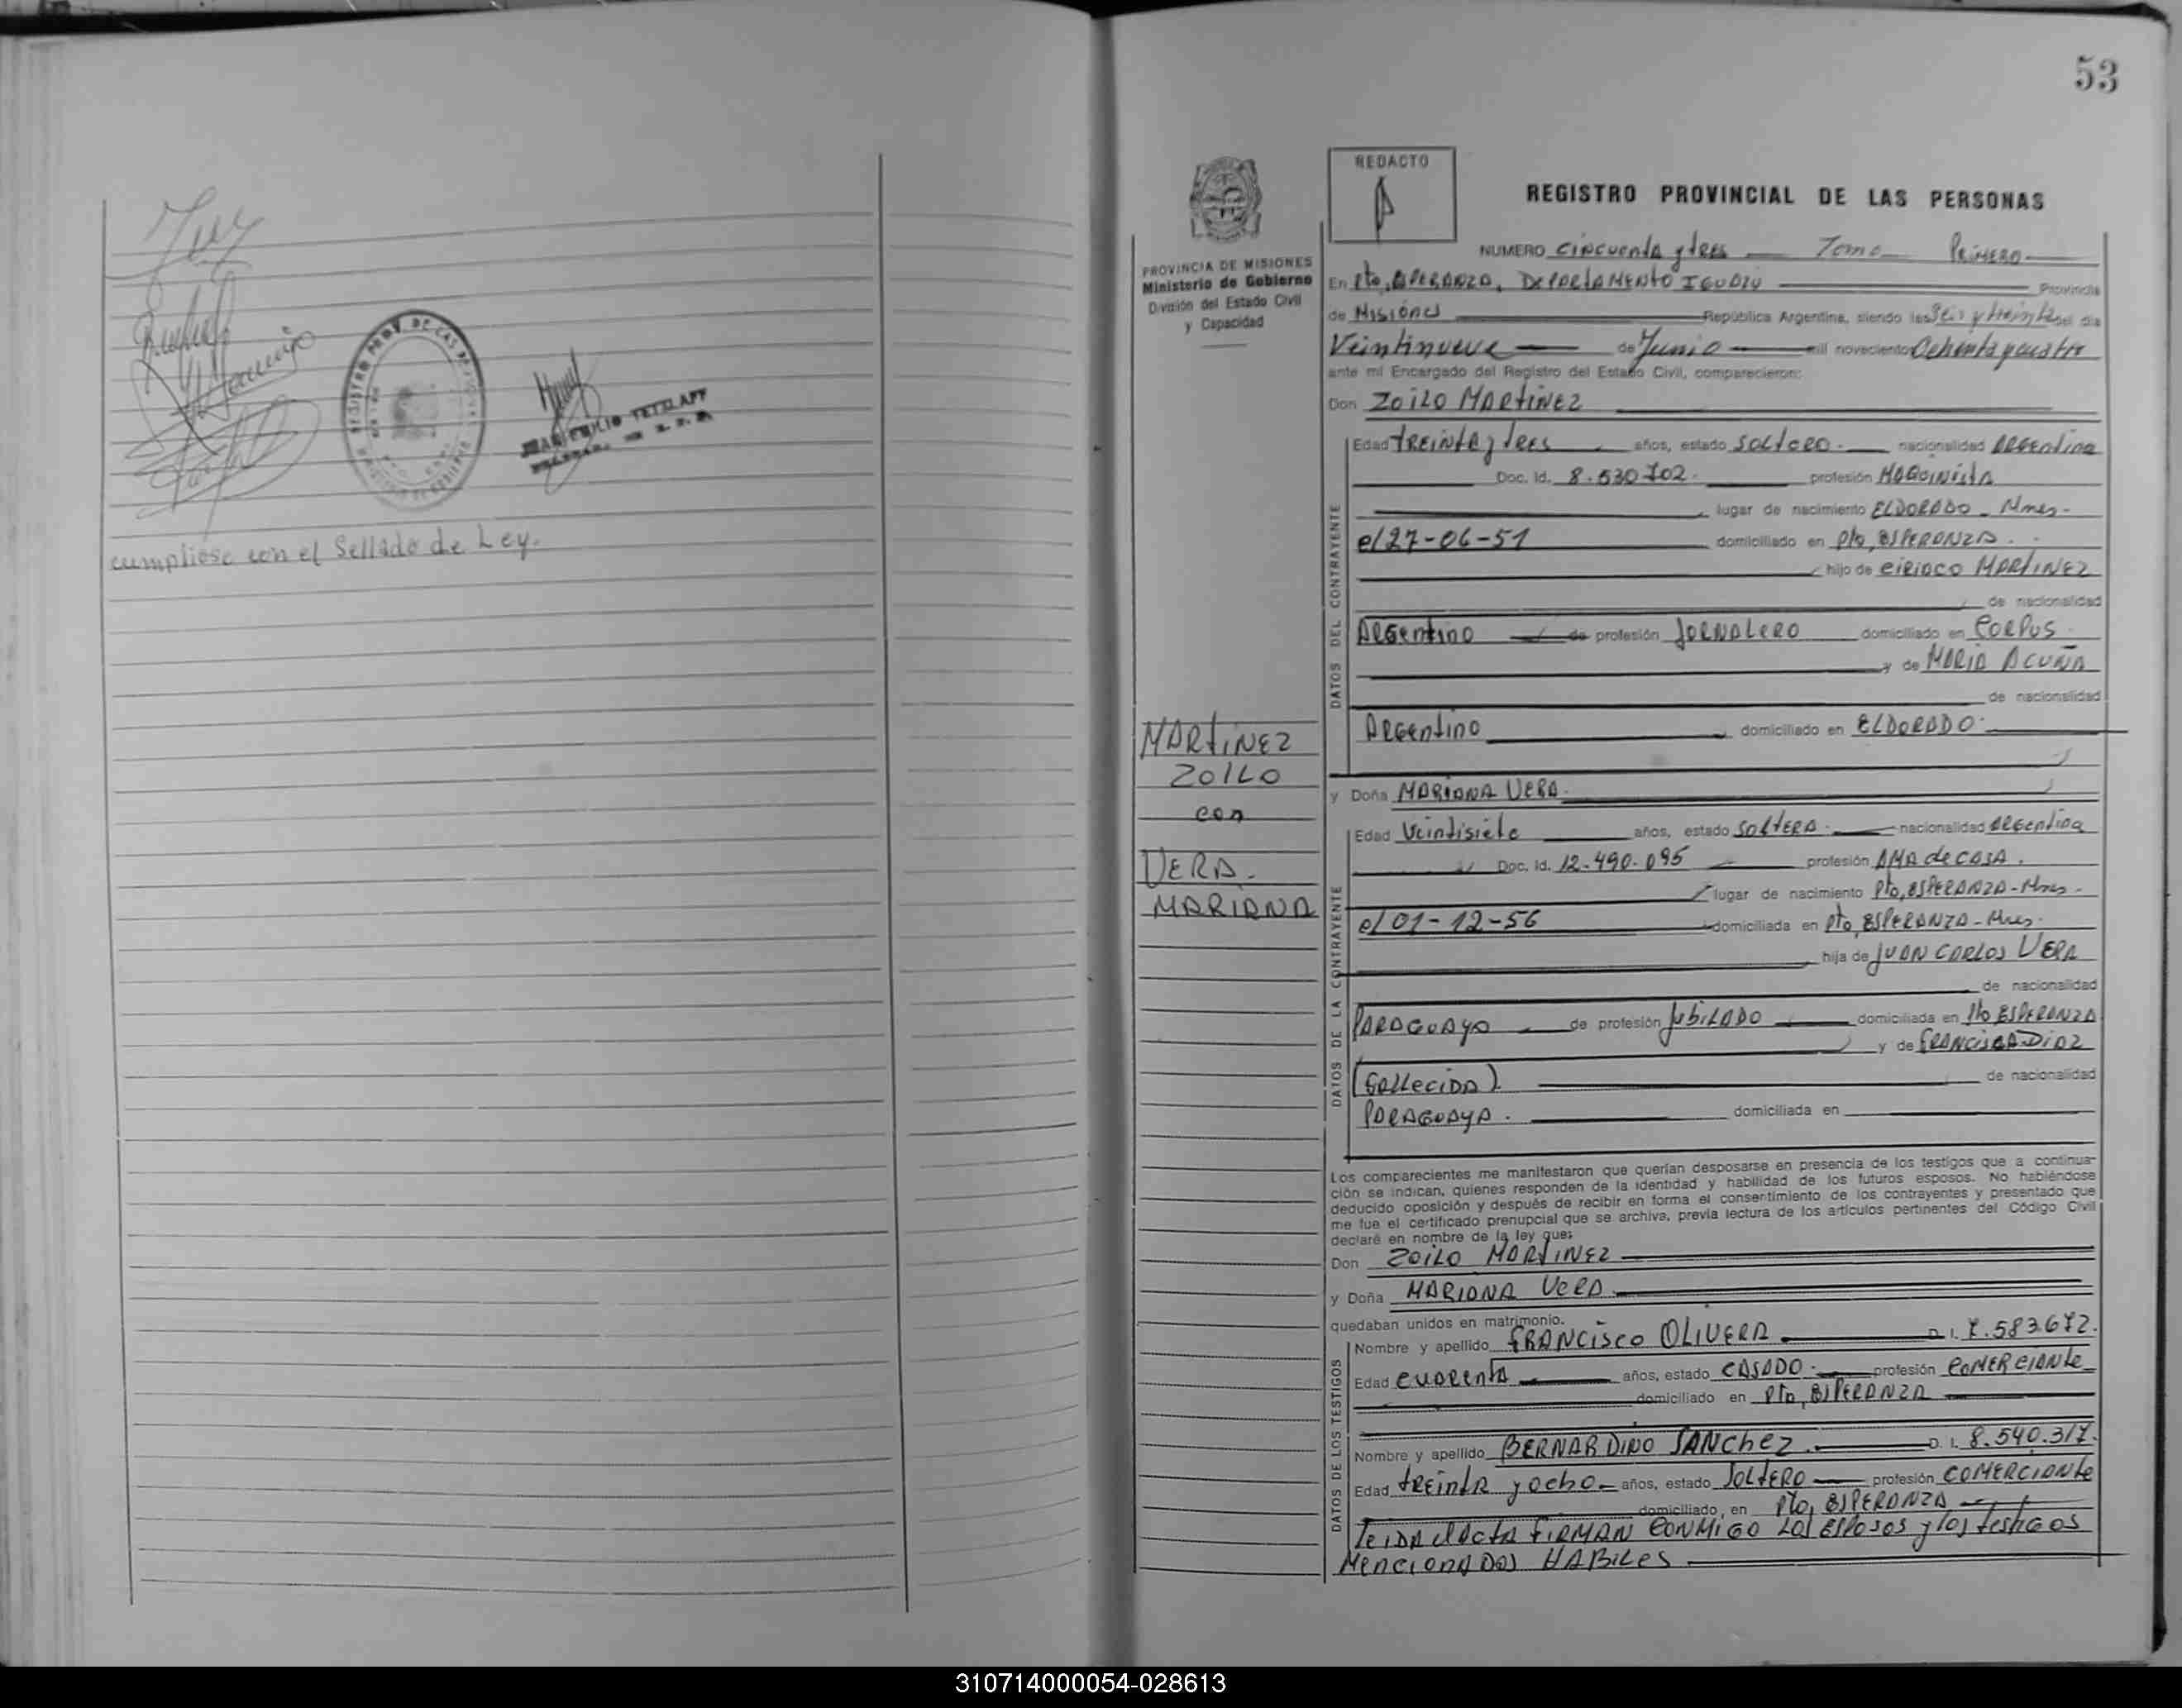 cumpliose con el Sellado de Ley.
53
REDACTO
REGISTRO PROVINCIAL DE LAS PERSONAS
NUMERO cincuenta y tres Tomo Primero
PROVINCIA DE MISIONES
Ministerio de Gobierno
División del Estado Civil
y Capacidad
En Pto, ESPERANZA, DEPARTAMENTO IGUAZU Provincia
de Misiones República Argentina, siendo las Seis y treinta del día
Veintinueve de Junio mil novecientos Ochenta y cuatro
ante mí Encargado del Registro del Estado Civil, comparecieron:
Don ZOILO MARTINEZ
DATOS DEL CONTRAYENTE
Edad TREINTA y tres años, estado SOLTERO. nacionalidad ARGENTINA
Doc. Id. 8.530.702. profesión MAQUINISTA
lugar de nacimiento ELDORADO - Mnes.
el 27-06-51 domiciliado en Pto, ESPERANZA.
hijo de CIRIACO MARTINEZ
de nacionalidad
ARGENTINO de profesión JORNALERO domiciliado en CORPUS
y de MARIA ACUÑA
de nacionalidad
ARGENTINO domiciliado en ELDORADO.
MARTINEZ
ZOILO
con
VERA.
MARIANA
y Doña MARIANA VERA.
DATOS DE LA CONTRAYENTE
Edad Veintisiete años, estado SOLTERA. nacionalidad ARGENTINA
Doc. Id. 12.490.095 profesión AMA de CASA.
lugar de nacimiento Pto, ESPERANZA-Mnes.
el 01-12-56 domiciliada en Pto, ESPERANZA-Mnes.
hija de JUAN CARLOS VERA
de nacionalidad
PARAGUAYO de profesión JUBILADO domiciliada en Pto ESPERANZA
y de FRANCISCA DIAZ
(FALLECIDA). de nacionalidad
PARAGUAYA. domiciliada en
Los comparecientes me manifestaron que querían desposarse en presencia de los testigos que a continua-
ción se indican, quienes responden de la identidad y habilidad de los futuros esposos. No habiéndose
deducido oposición y después de recibir en forma el consentimiento de los contrayentes y presentado que
me fue el certificado prenupcial que se archiva, previa lectura de los artículos pertinentes del Código Civil
declaré en nombre de la ley que:
Don ZOILO MARTINEZ
y Doña MARIANA VERA.
quedaban unidos en matrimonio.
DATOS DE LOS TESTIGOS
Nombre y apellido FRANCISCO OLIVERA D. I. 7.583.672.
Edad CUARENTA años, estado CASADO. profesión COMERCIANTE
domiciliado en Pto, ESPERANZA
Nombre y apellido BERNARDINO SANCHEZ. D. I. 8.540.317.
Edad TREINTA y ocho años, estado SOLTERO profesión COMERCIANTE
domiciliado en Pto, ESPERANZA
Leida el Acta FIRMAN CONMIGO LOS ESPOSOS y los testigos
MENCIONADOS HABILES
310714000054-028613